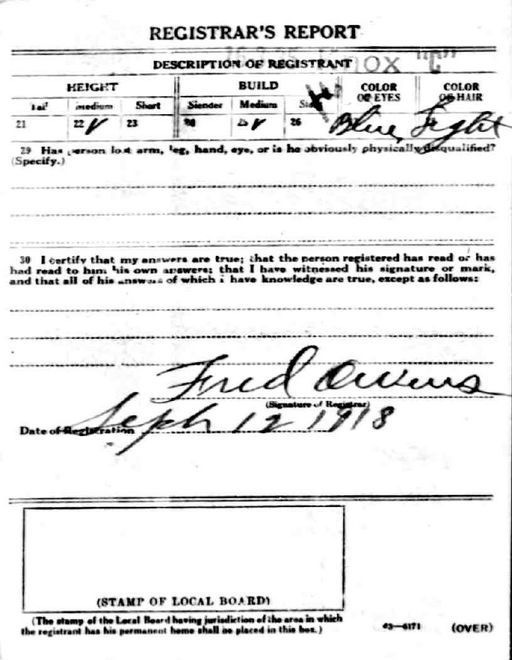 REGISTRAR'S REPORT
KNOX "C"
DESCRIPTION OF REGISTRANT
HEIGHT BUILD COLOR OF EYES COLOR OF HAIR
Tall Medium Short Slender Medium Stout
21 22 ✓ 23 25 ✓ 26 Blue Light
29 Has person lost arm, leg, hand, eye, or is he obviously physically disqualified?
(Specify.)
30 I certify that my answers are true; that the person registered has read or has
had read to him his own answers; that I have witnessed his signature or mark,
and that all of his answers of which I have knowledge are true, except as follows:
Fred Owens
(Signature of Registrar)
Date of Registration Sept 12 1918
(STAMP OF LOCAL BOARD)
(The stamp of the Local Board having jurisdiction of the area in which
the registrant has his permanent home shall be placed in this box.)
03—6171 (OVER)